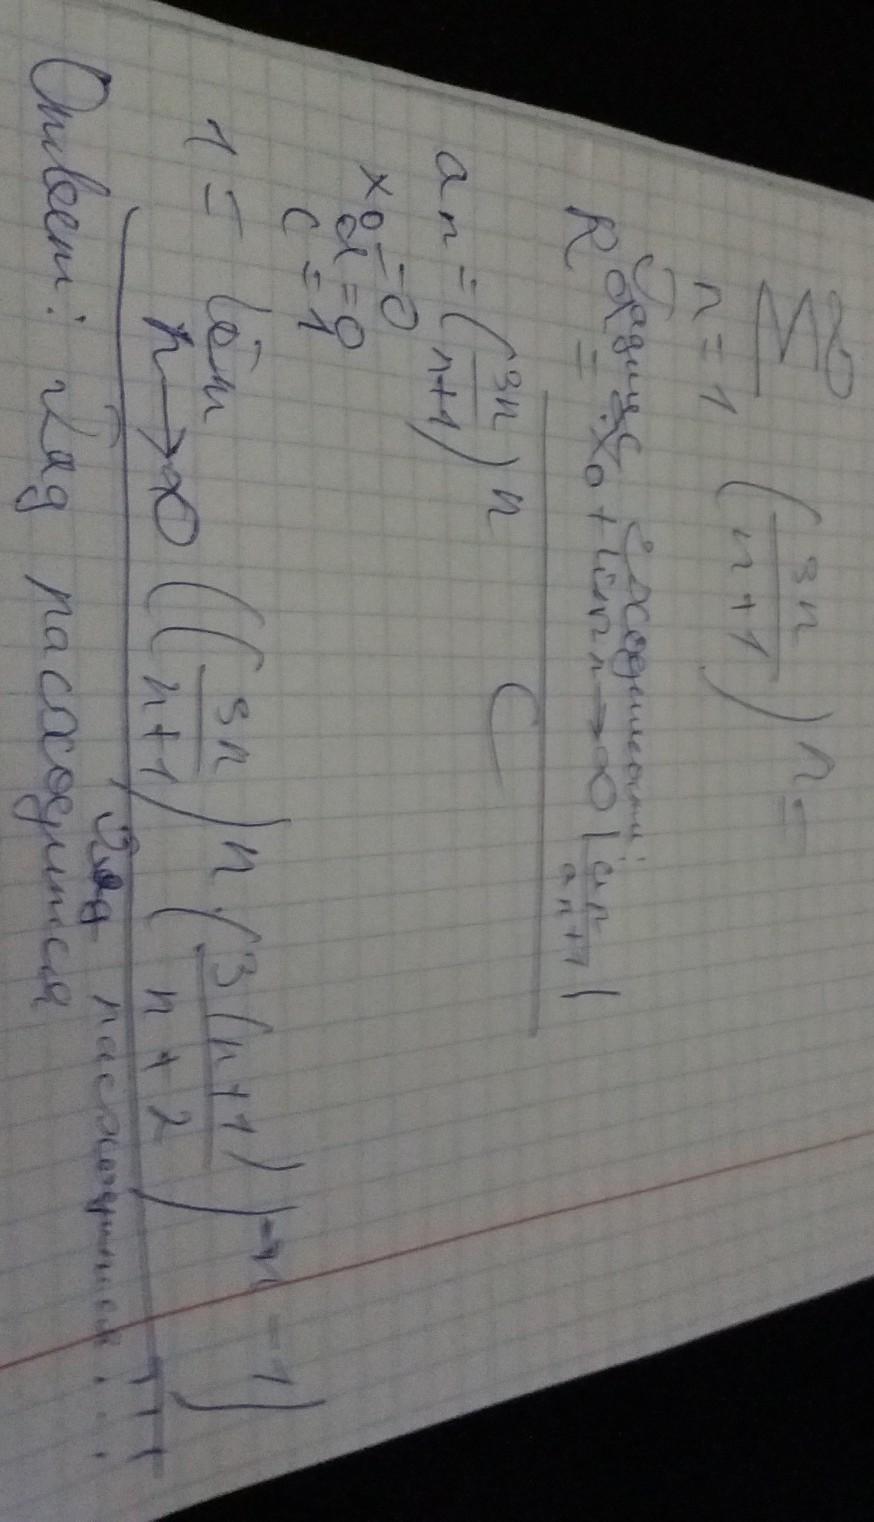 ∞
∑ (3n/(n+1))^n =
n=1
Радиус сходимости:
R = x₀ + lim n→∞ |aₙ/aₙ₊₁|
aₙ = (3n/(n+1))^n
x₀ = 0
d = 0
c = 1
1 = lim n→∞ ((3n/(n+1))^n · (3(n+1)/(n+2))^(-n-1))
расходится...
Ответ: Ряд расходится